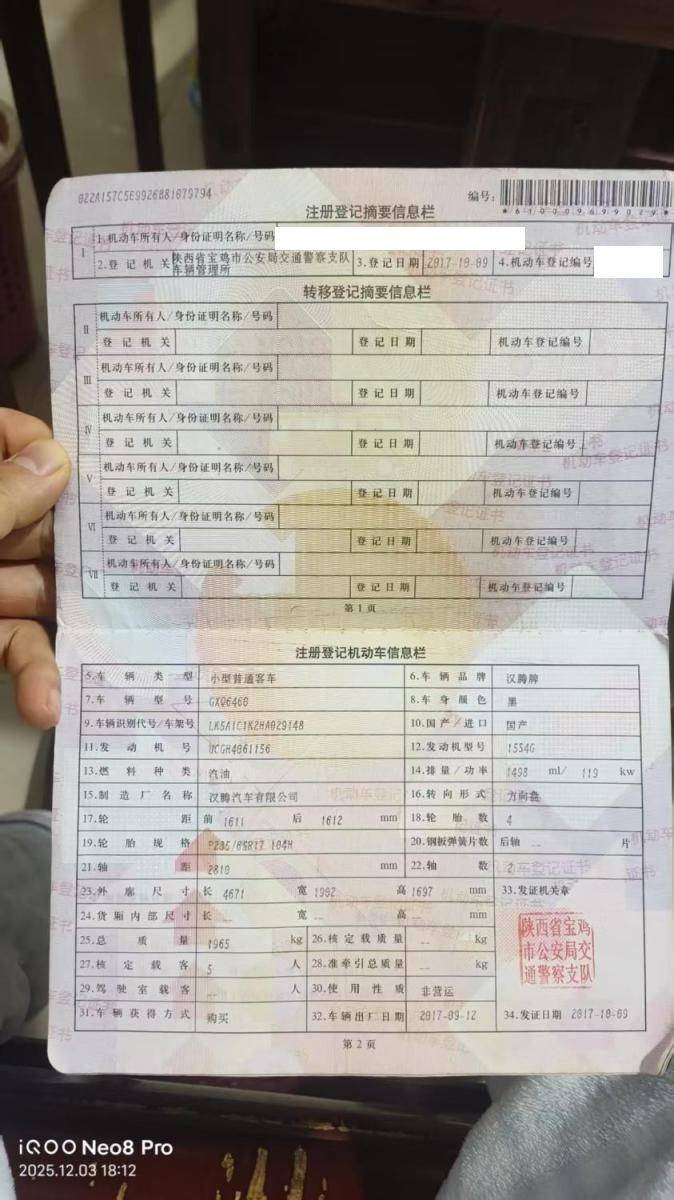 022A157C5E9926881079794
编号:
*610009699029*
注册登记摘要信息栏
I 1.机动车所有人/身份证明名称/号码
2.登记机关 陕西省宝鸡市公安局交通警察支队车辆管理所 3.登记日期 2017-10-09 4.机动车登记编号
转移登记摘要信息栏
II 机动车所有人/身份证明名称/号码
登记机关 登记日期 机动车登记编号
III 机动车所有人/身份证明名称/号码
登记机关 登记日期 机动车登记编号
IV 机动车所有人/身份证明名称/号码
登记机关 登记日期 机动车登记编号
V 机动车所有人/身份证明名称/号码
登记机关 登记日期 机动车登记编号
VI 机动车所有人/身份证明名称/号码
登记机关 登记日期 机动车登记编号
VII 机动车所有人/身份证明名称/号码
登记机关 登记日期 机动车登记编号
第1页
注册登记机动车信息栏
5.车辆类型 小型普通客车 6.车辆品牌 汉腾牌
7.车辆型号 GXQ6460 8.车身颜色 黑
9.车辆识别代号/车架号 LK5A1C1K2HA029148 10.国产/进口 国产
11.发动机号 UCGH4061156 12.发动机型号 1554G
13.燃料种类 汽油 14.排量/功率 1498 ml/ 119 kw
15.制造厂名称 汉腾汽车有限公司 16.转向形式 方向盘
17.轮距 前 1611 后 1612 mm 18.轮胎数 4
19.轮胎规格 P235/65R17 104H 20.钢板弹簧片数 后轴 -- 片
21.轴距 2810 mm 22.轴数 2
23.外廓尺寸 长 4671 宽 1902 高 1697 mm 33.发证机关章
24.货厢内部尺寸 长 -- 宽 -- 高 -- mm
25.总质量 1965 kg 26.核定载质量 -- kg
27.核定载客 5 人 28.准牵引总质量 -- kg
29.驾驶室载客 -- 人 30.使用性质 非营运
陕西省宝鸡
市公安局交
通警察支队
31.车辆获得方式 购买 32.车辆出厂日期 2017-09-12 34.发证日期 2017-10-09
第2页
iQOO Neo8 Pro
2025.12.03 18:12